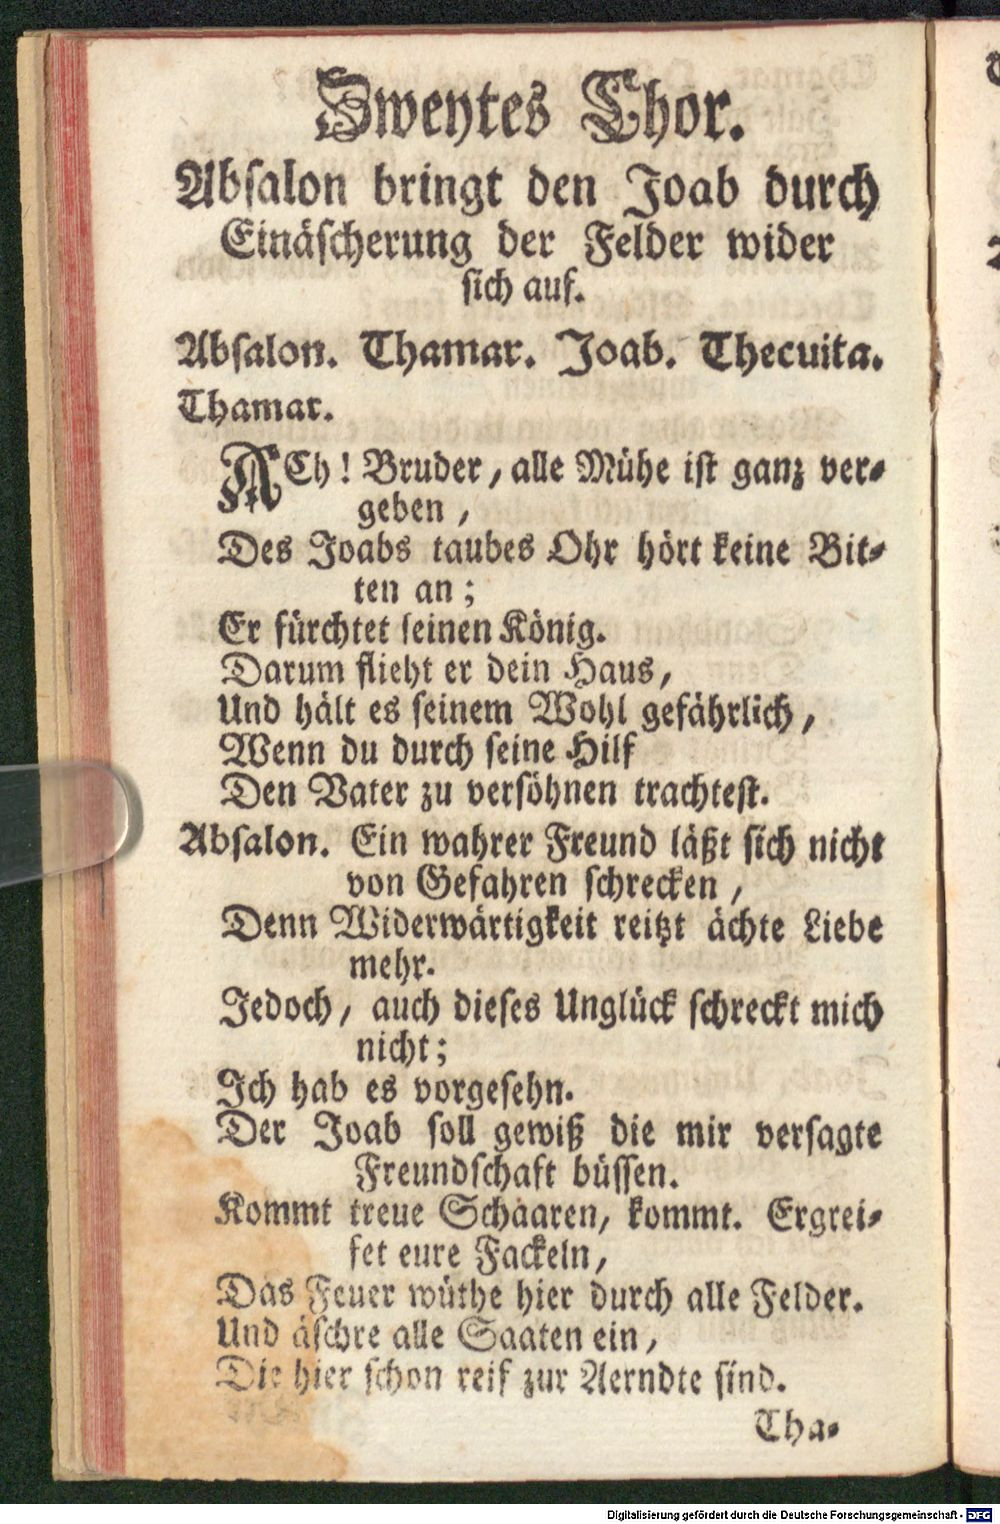 Zweytes Chor.
Absalon bringt den Joab durch
Einäscherung der Felder wider
sich auf.
Absalon. Thamar. Joab. Thecuita.
Thamar.
ACh! Bruder, alle Mühe ist ganz ver-
geben,
Des Joabs taubes Ohr hört keine Bit-
ten an;
Er fürchtet seinen König.
Darum flieht er dein Haus,
Und hält es seinem Wohl gefährlich,
Wenn du durch seine Hilf
Den Vater zu versöhnen trachtest.
Absalon. Ein wahrer Freund läßt sich nicht
von Gefahren schrecken,
Denn Widerwärtigkeit reitzt ächte Liebe
mehr.
Jedoch, auch dieses Unglück schreckt mich
nicht;
Ich hab es vorgesehn.
Der Joab soll gewiß die mir versagte
Freundschaft büssen.
Kommt treue Schaaren, kommt. Ergrei-
fet eure Fackeln,
Das Feuer wüthe hier durch alle Felder.
Und äschre alle Saaten ein,
Die hier schon reif zur Aerndte sind.
Tha-
Digitalisierung gefördert durch die Deutsche Forschungsgemeinschaft - DFG